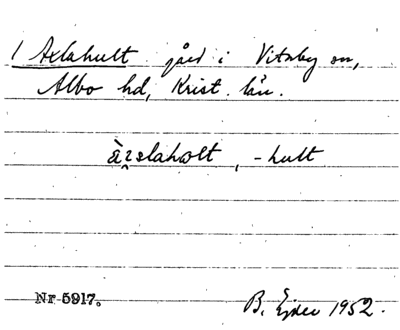 1 Axlahult gård i Vitaby sn,
Albo hd, Krist. län.
-hult
Nr 5917.
B. Ejder 1952.